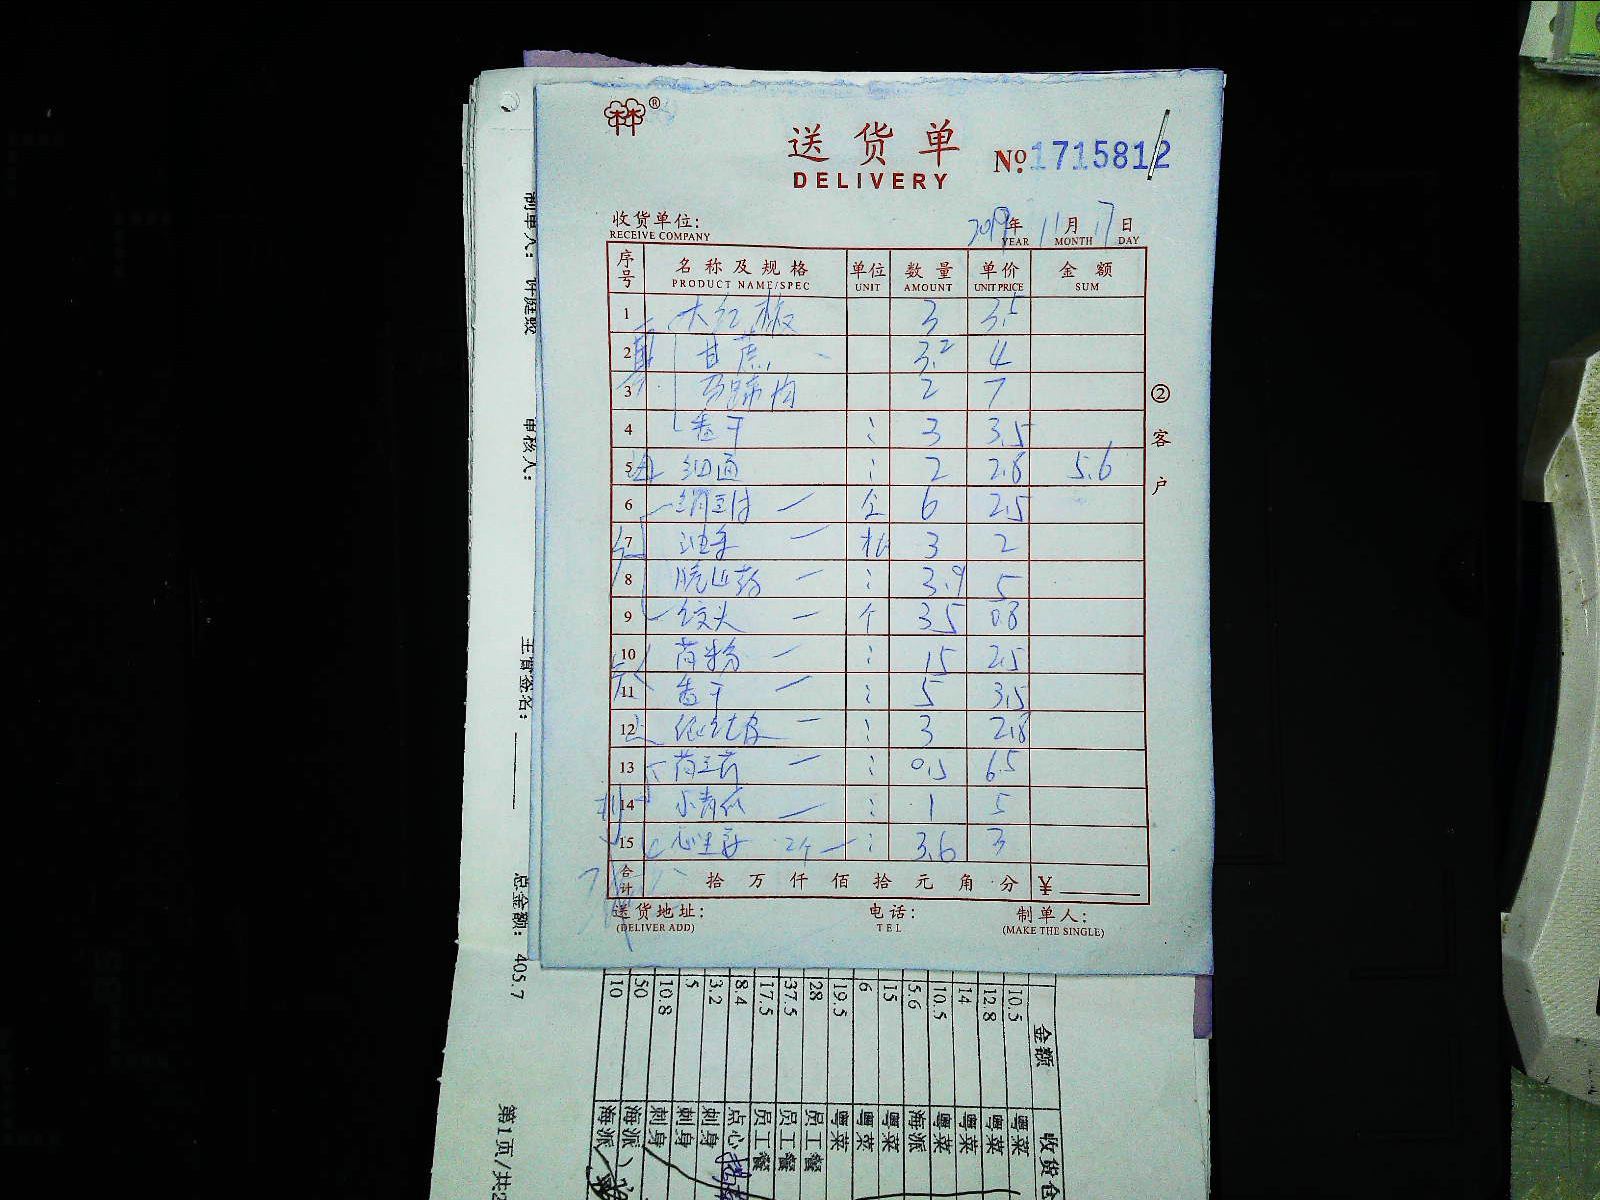 ®
送货单
DELIVERY
No. 1715812
收货单位:
RECEIVE COMPANY
2019年 11月 17日
YEAR MONTH DAY
序号 名称及规格 单位 数量 单价 金额
PRODUCT NAME/SPEC UNIT AMOUNT UNIT PRICE SUM
1 大红椒 3 3.5
2 甘蔗 3.2 4
3 马蹄肉 2 7
4 香干 3 3.5
5 2 2.8 5.6
6 6 2.5
7 3 2
8 3.9 5
9 个 35 0.8
10 15 2.5
11 香干 5 3.5
12 3 2.8
13 0.5 6.5
14 1 5
15 2个 3.6 3
合计 拾 万 仟 佰 拾 元 角 分 ¥
送货地址: 电话: 制单人:
(DELIVER ADD) TEL (MAKE THE SINGLE)
② 客户
制单人:
审核人:
主管签名:
总金额: 405.7
第1页/共2
金额 收货仓
10.5 粤菜
12.8 粤菜
14 粤菜
10.5 粤菜
5.6 海派
15 粤菜
6 粤菜
19.5 粤菜
28 员工餐
37.5 员工餐
17.5 员工餐
8.4 点心
3.2 刺身
5 刺身
10.8 刺身
50 海派
10 海派